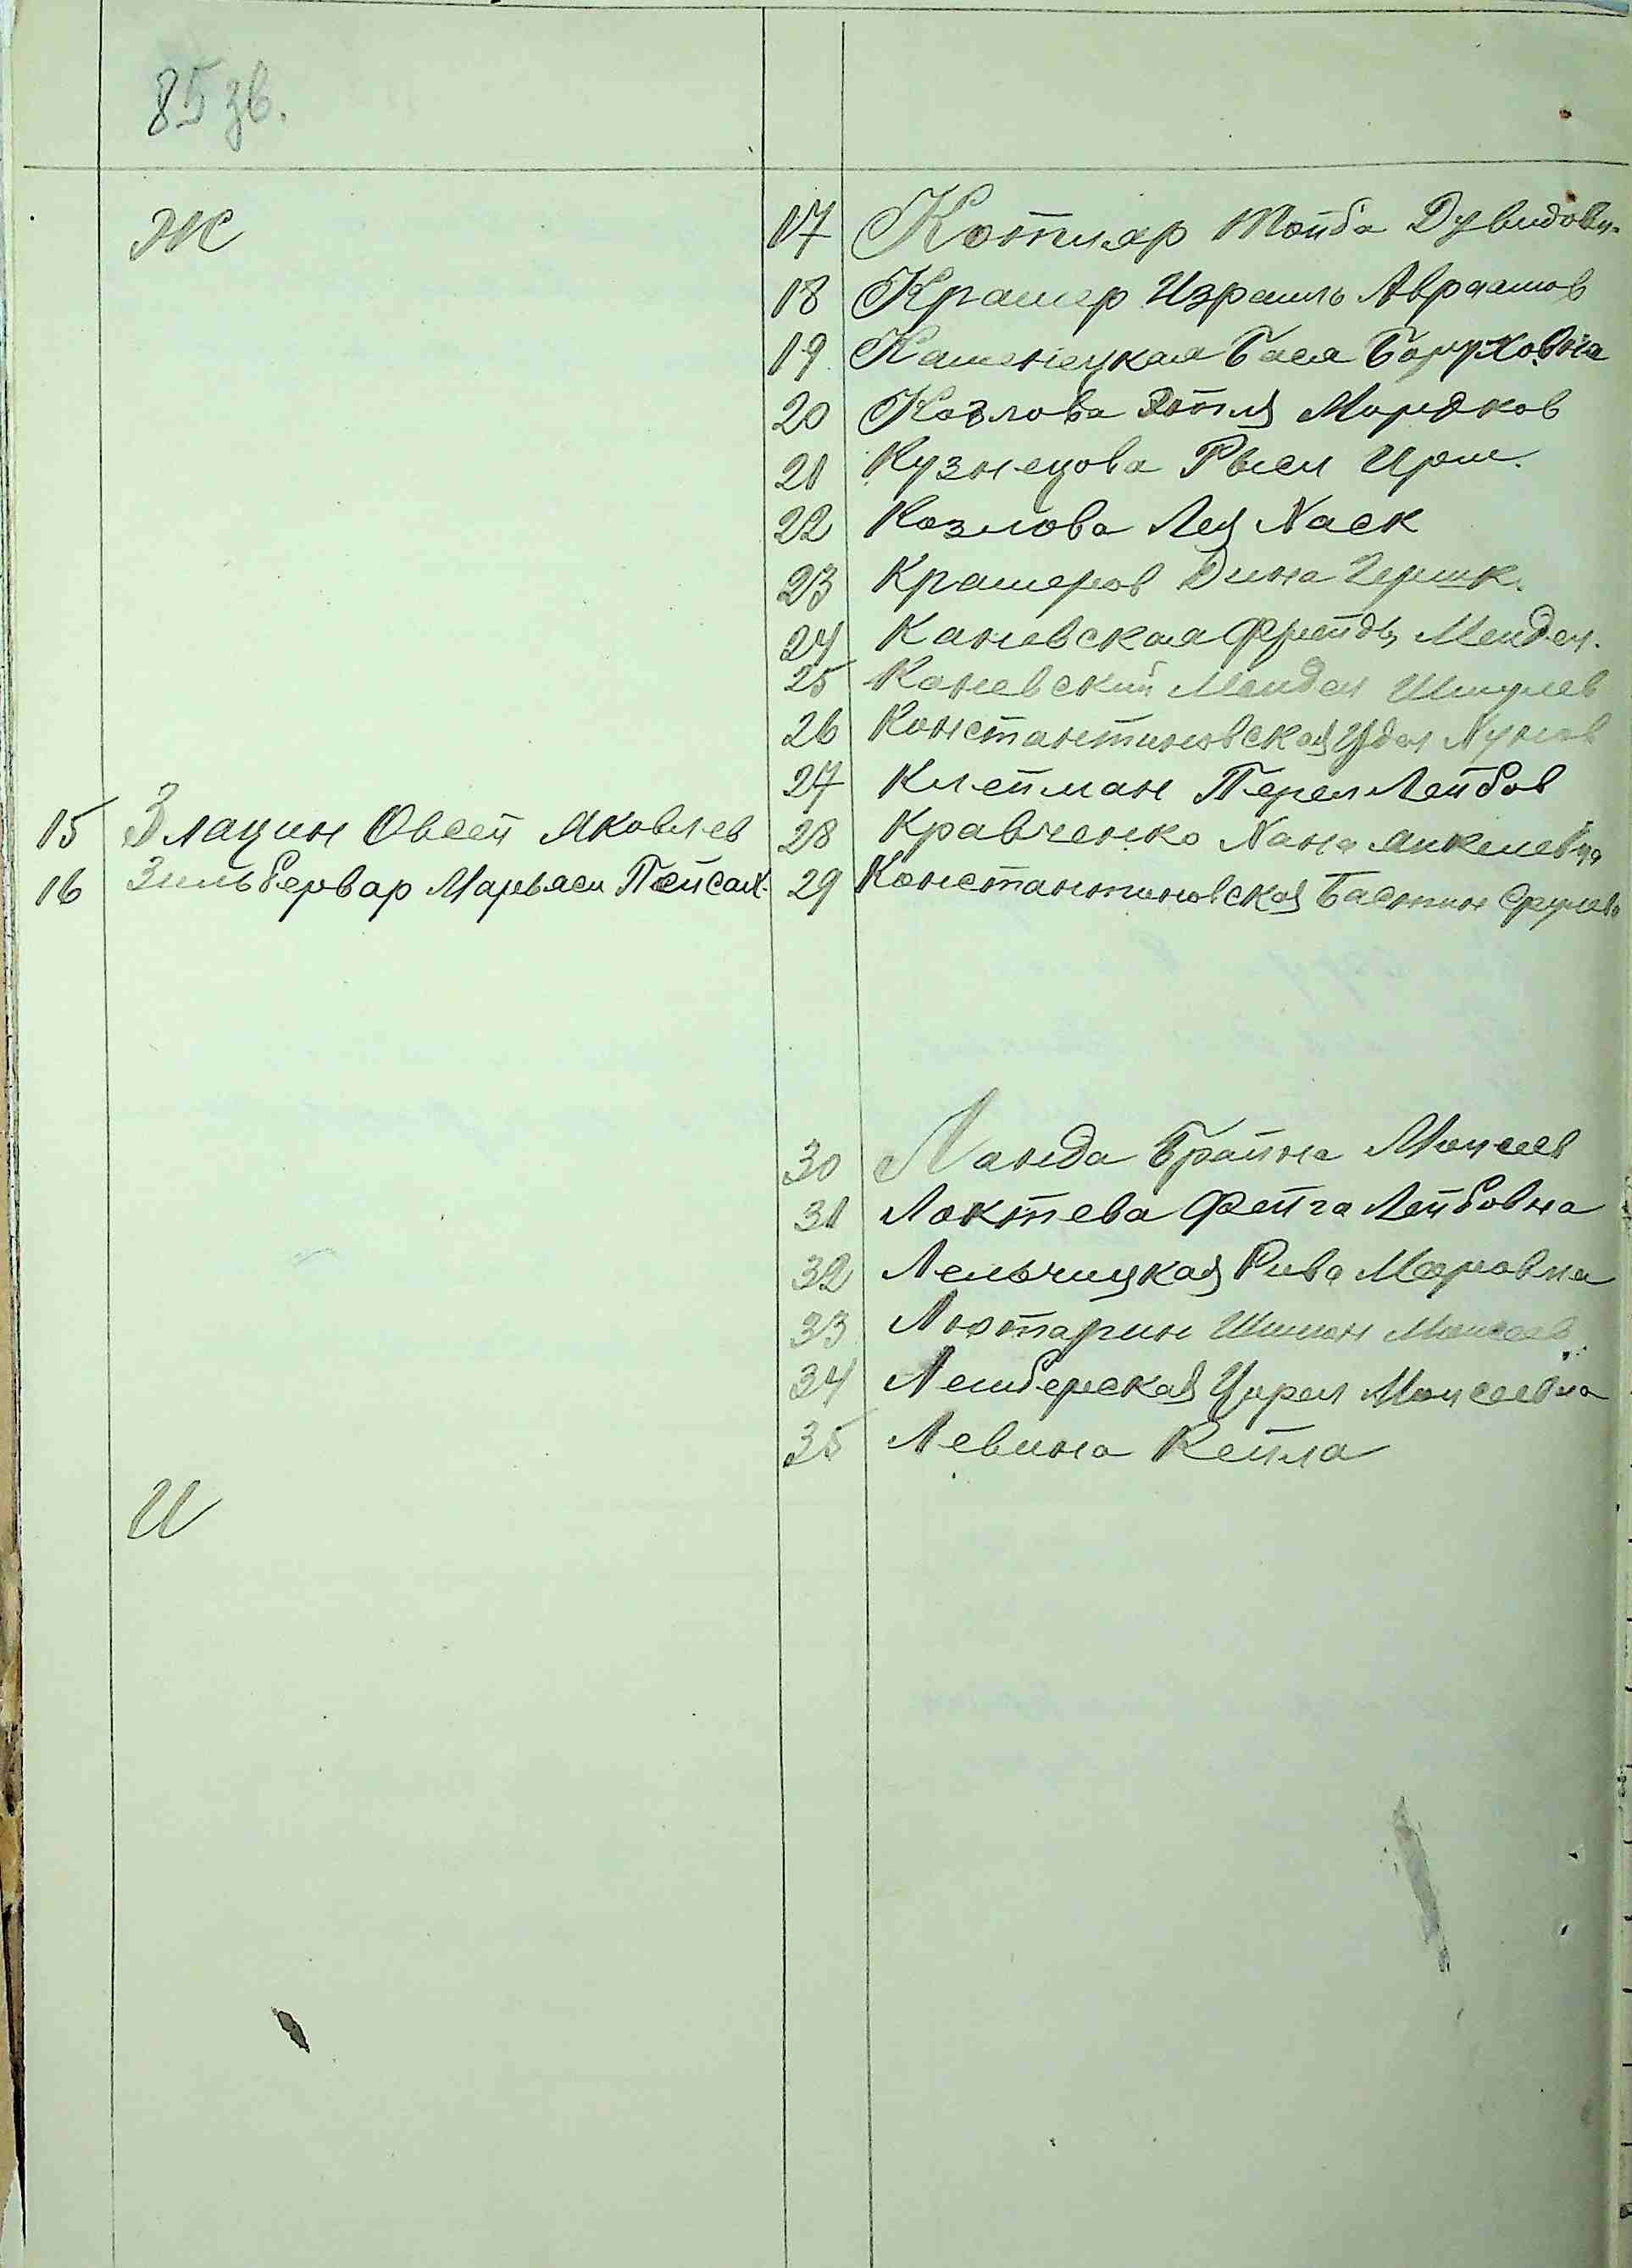 85 зв.
Ж
15 Злацин Овсей Яковлев
16 Зильбервар Марьяси Пейсах.
И
17 Котляр Тойба Дувидовн.
18 Крамер Израиль Авраамов
19 Каменецкая Бася Боруховна
20 Козлова Этля Мордков
21 Кузнецова Рысл Ирш.
22 Козлова Лея Хаск
23 Крамеров Дина Гершк.
24 Каневская Фрейда Мендел.
25 Каневский Мендел Шмулев
26 Константиновская Удел Нухов
27 Клейман Перел Лейбов
28 Кравченко Хана Янкелевна
29 Константиновская Бастин Срулев
30 Ланда Брайна Моисеев
31 Локтева Фейга Лейбовна
32 Лельчицкая Рива Меровна
33 Лютарин Шимон Моисеев
34 Лемберская Цирел Моисеевна
35 Левина Кейла